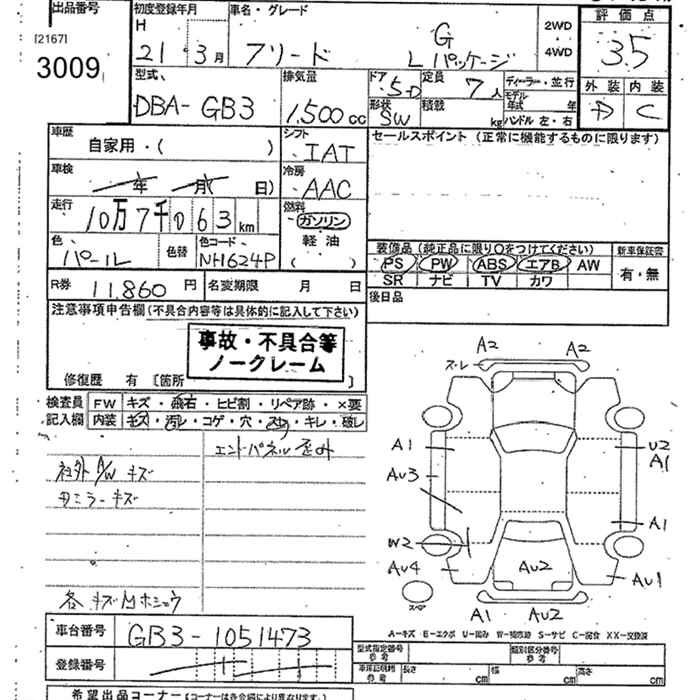 出品番号
[2167]
3009
初度登録年月
H
21 . 3月
車名・グレード
フリード
G
Lパッケージ
2WD
・
4WD
評価点
3.5
外装 内装
D C
型式
DBA-GB3
排気量
1,500cc
ドア 5D
形状 SW
定員 7人
積載 kg
ディーラー・並行
モデル年式 年
ハンドル 左・右
車歴
自家用・( )
車検
年 月( 日)
走行
10万7千063km
色
パール
色替
色コード
NH624P
シフト
IAT
冷房
AAC
燃料
ガソリン
軽油
( )
セールスポイント(正常に機能するものに限ります)
装備品(純正品に限り○をつけてください)
PS PW ABS エアB AW
SR ナビ TV カワ
新車保証書
有・無
後日品
R券 11,860円
名変期限 月 日
注意事項申告欄(不具合内容等は具体的に記入して下さい)
事故・不具合等
ノークレーム
修復歴 有 〔箇所 〕
検査員記入欄
FW キズ・飛石・ヒビ割・リペア跡・×要
内装 キズ・汚レ・コゲ・穴・スリ・キレ・破レ
エンドパネル歪み
社外A/Wキズ
ミラーキズ
各キズ ホシュウ
A2 A2
ズ.レ
A1
U2
A1
AU3
A1
W2
AU4
AU2
AU1
スペア
A1 AU2
A-キズ E-エクボ U-凹み W-補修跡 S-サビ C-腐食 XX-交換済
車台番号
GB3-1051473
登録番号
型式指定番号
参考
類別区分番号
参考
車庫証明時
参考
長さ cm 幅 cm 高さ cm
希望出品コーナー